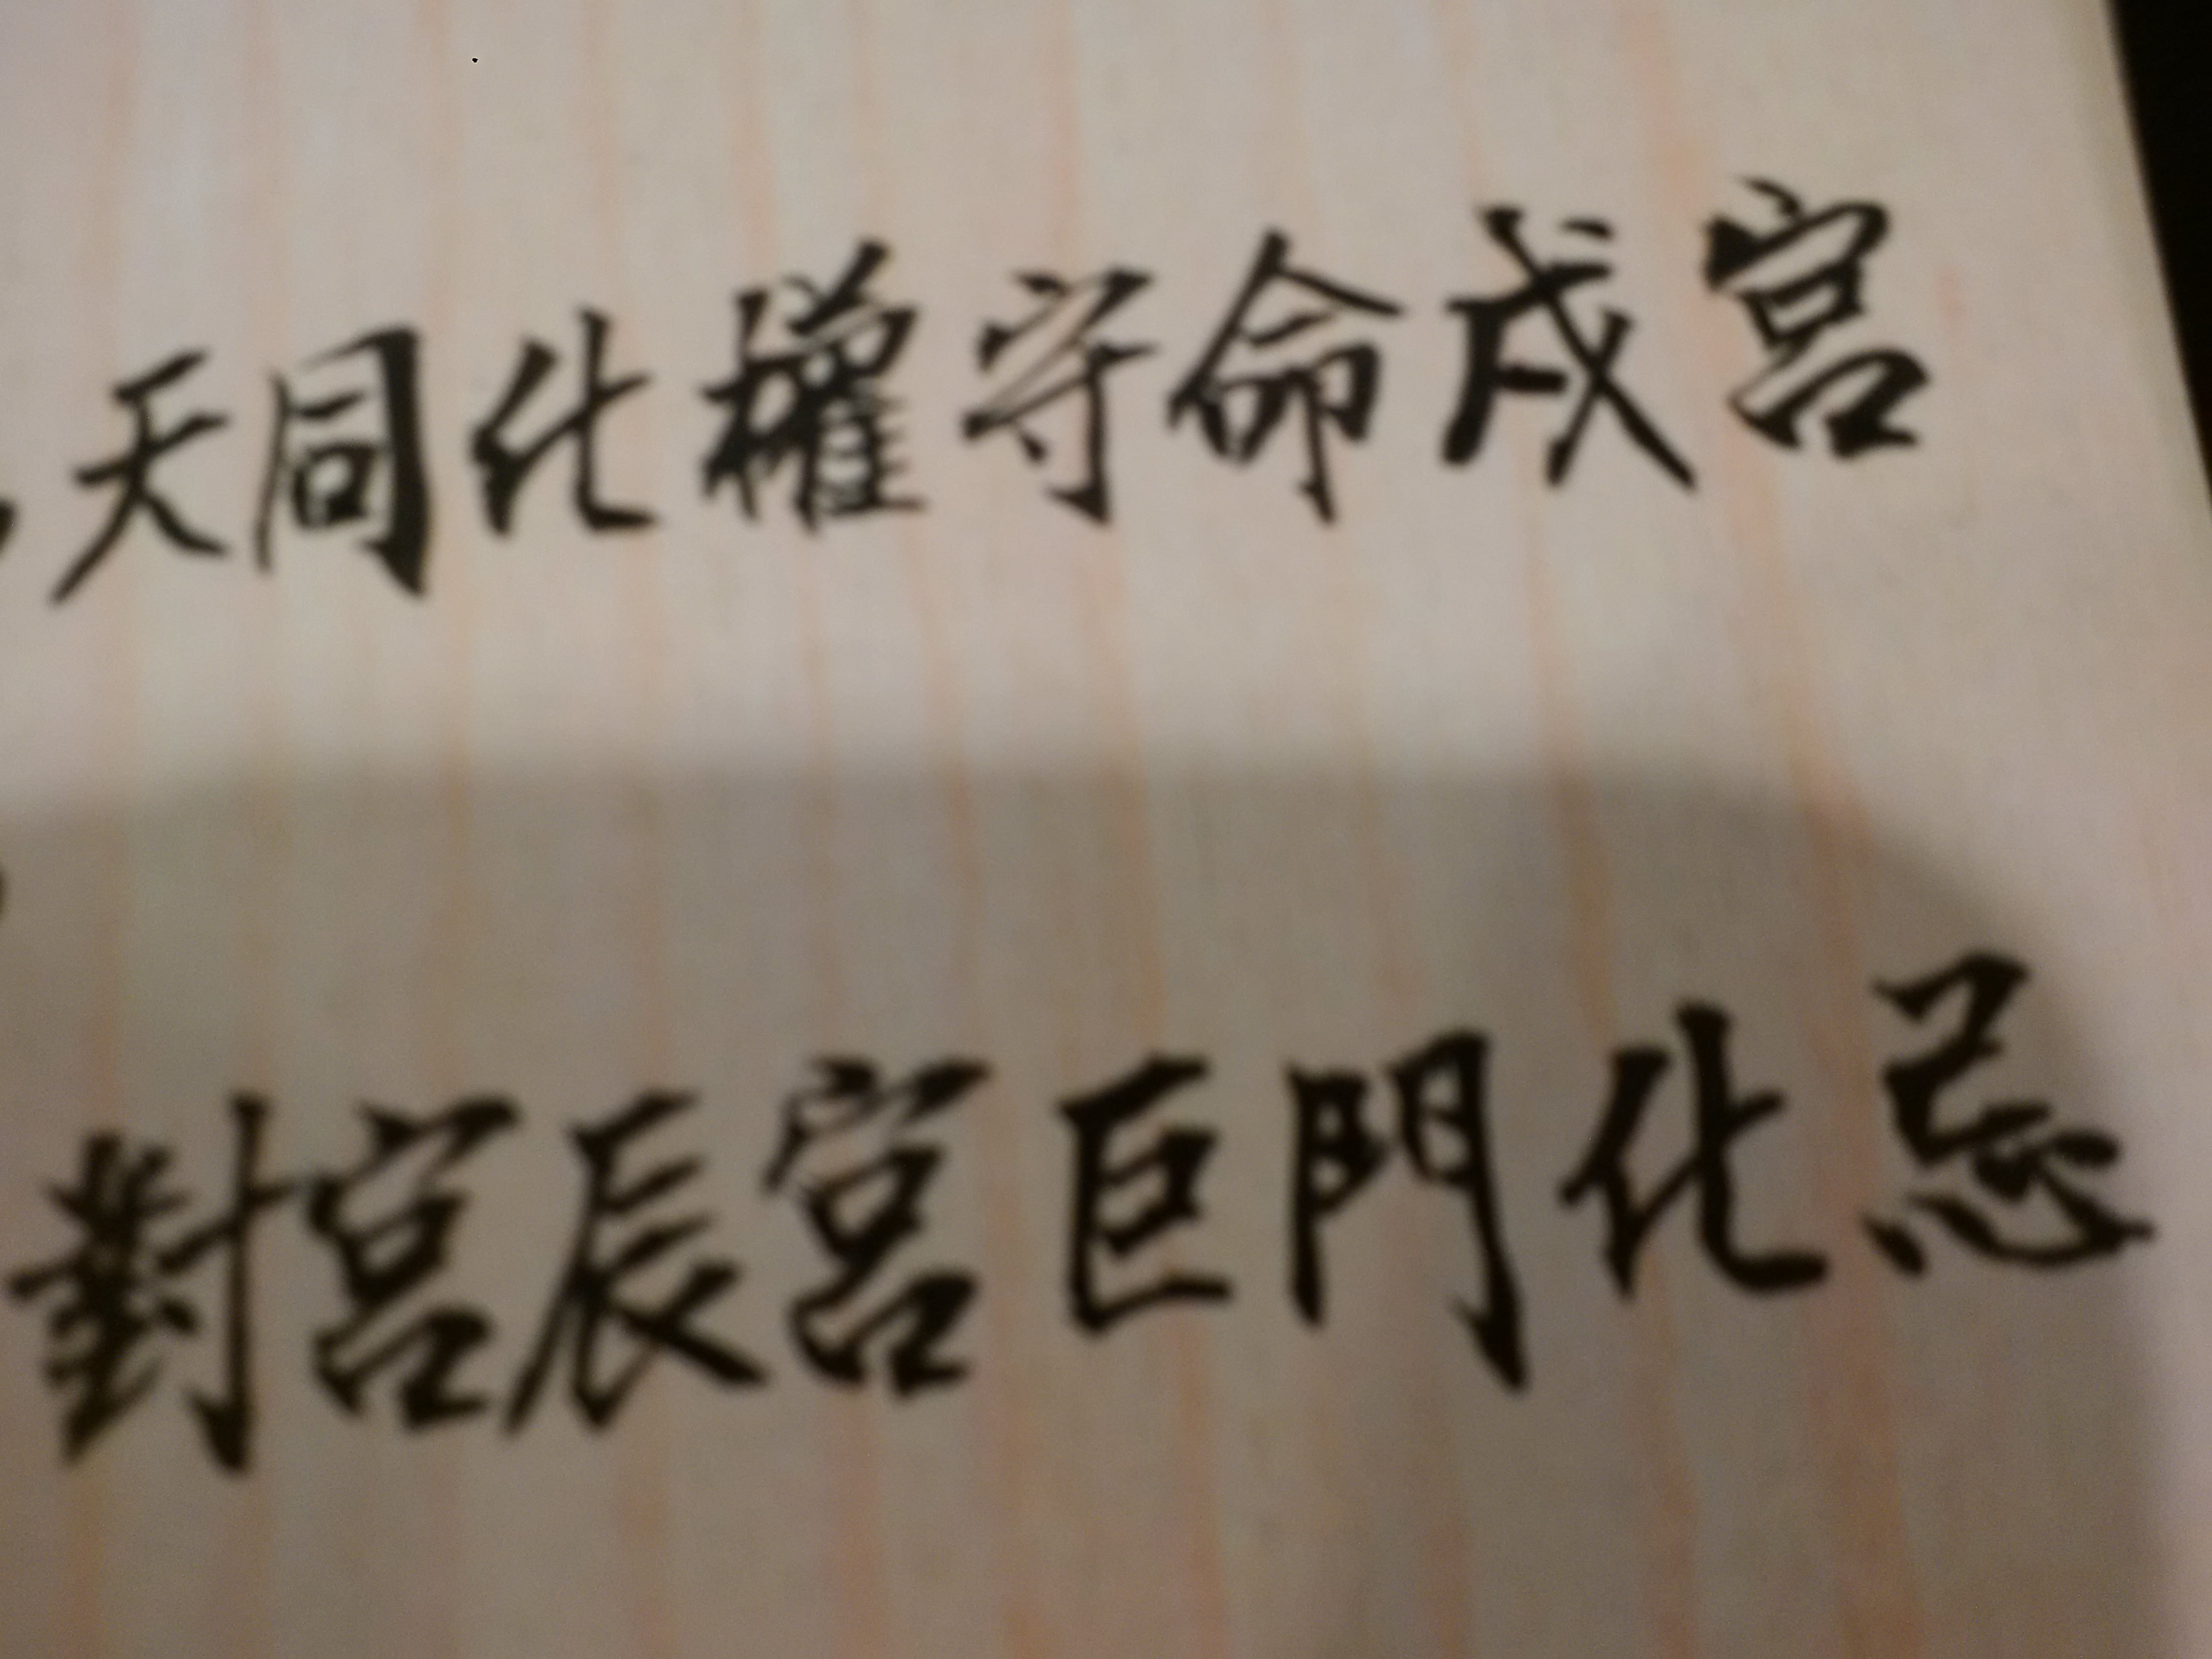 天同化權守命戌宮
對宮辰宮巨門化忌